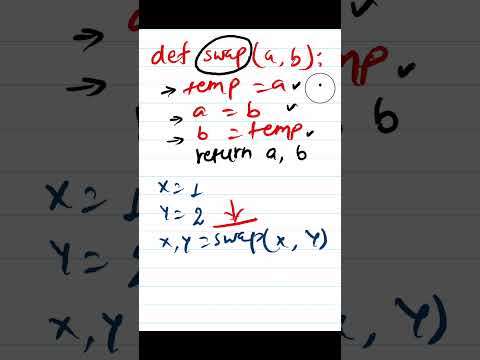 def swap(a, b):
temp = a
a = b
b = temp
return a, b
x = 1
y = 2
x, y = swap(x, y)